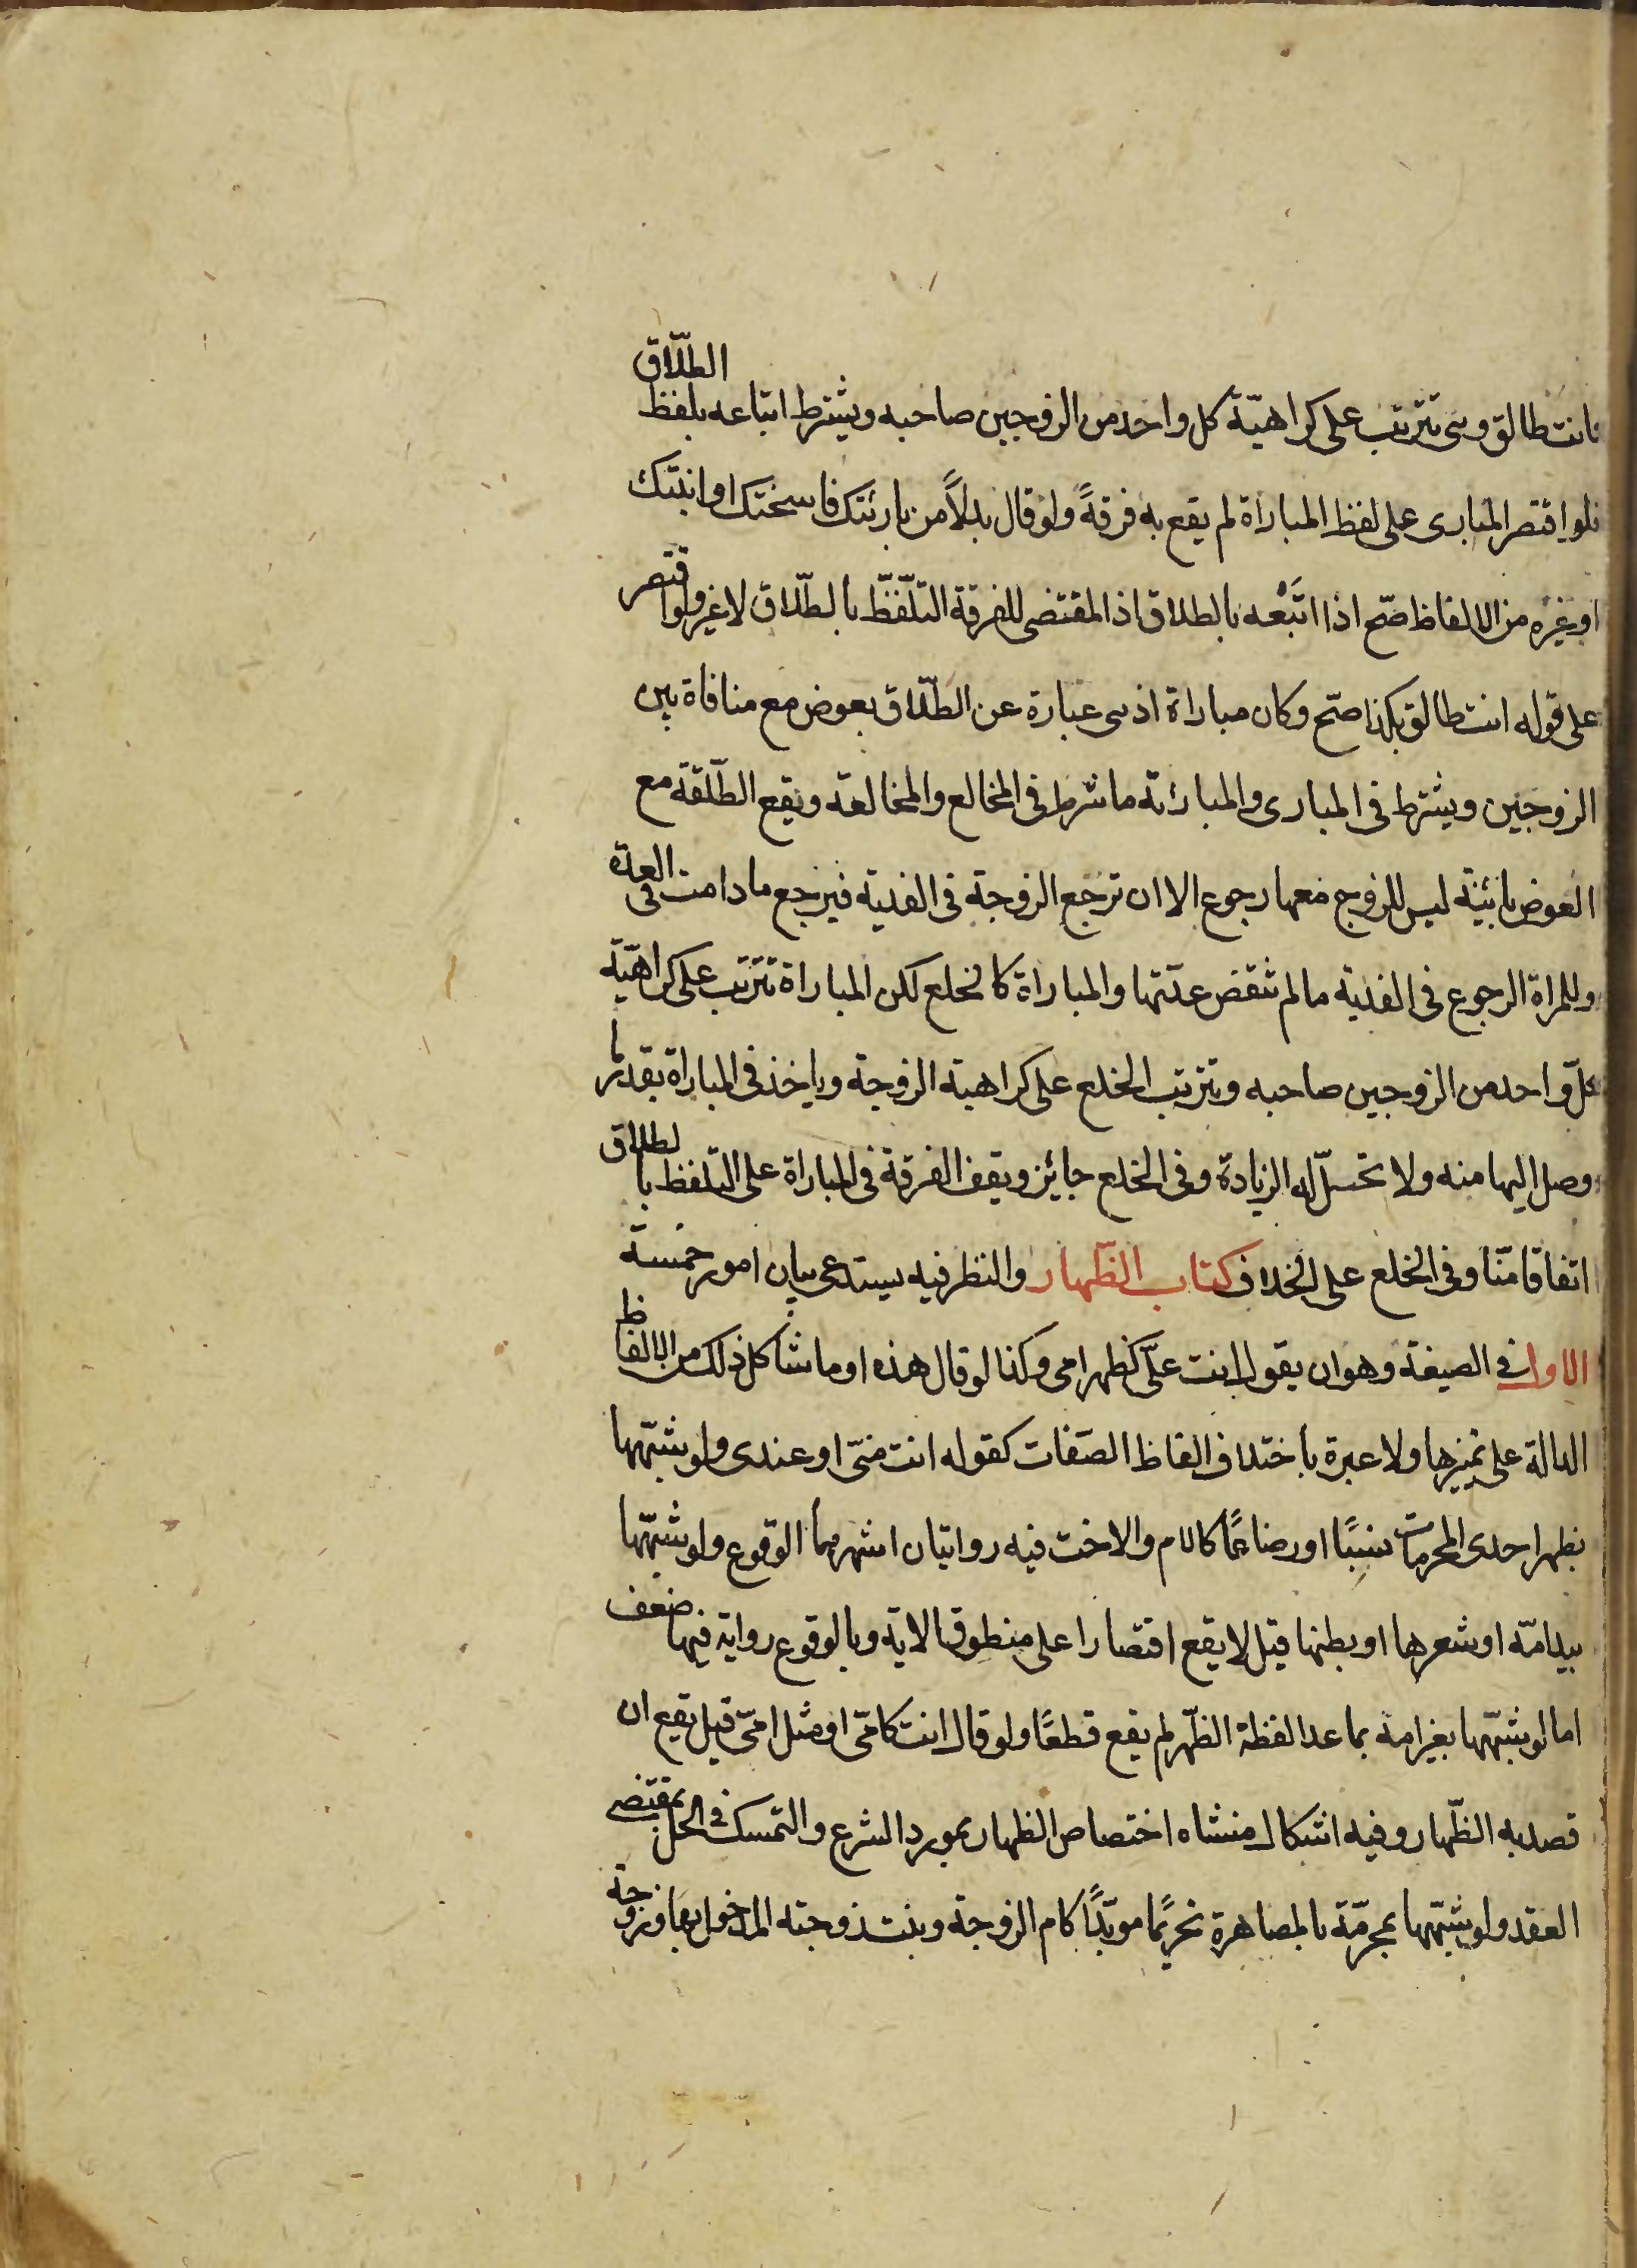 فانت طالق وهى تترتب على كراهيّة كل واحد من الزوجين صاحبه ويشترط اتباعه بلفظ الطلّاق
فلو اقتصر المبارى على لفظ المباراة لم يقع به فرقةً ولو قال بدلاً من بارئتك فاسختك او ابنتك
او غيره من الالفاظ صّح اذا اتبَعْه بالطلاق اذ المقتضى للفرقة التلّفظّ بالطلّاق لا غير ولو اقتصر
على قوله انت طالق بكذا صّح وكان مباراة اذ هى عبارة عن الطلّاق بعوض مع منافاة بين
الزوجين ويشترط فى المبارى والمبارئة ما شرط فى المخالع والمخالعة ويقع الطّلقة مع
العوض بائنة ليس للزوج معها رجوع الا ان ترجع الزوجة فى الفدية فيرجع ما دامت فى العدة
وللمراة الرجوع فى الفدية ما لم تنقض عدّتها والمباراة كالخلع لكن المباراة تترتب على كراهيّة
كلّ واحد من الزوجين صاحبه ويترتب الخلع على كراهية الزوجة وياخذ فى المباراة بقدر ما
وصل اليها منه ولا تحلّ له الزيادة وفى الخلع جايز ويقف الفرقة فى المباراة على التلفظ بالطلاق
اتفاقا منّا وفى الخلع على الخلاف كتاب الظّهار والنظر فيه يستدعى بيان امور خمسة
الاول فى الصيغة وهو ان يقول انت علّى كظهر امى وكذا لو قال هذه او ما شاكل ذلك من الالفاظ
الدالة على تميزها ولا عبرة باختلاف الفاظ الصّفات كقوله انت منّى او عندى ولو شبّهها
بظهر احدى المحرمات نسبًا او رضاعًا كالام والاخت فيه روايتان اشهرهما الوقوع ولو شبّهها
بيد امّه او شعرها او بطنها قيل لا يقع اقتصارا على منطوق الاية وبالوقوع رواية فيها ضعف
اما لو شبّهها بغير امه بما عدا لفظة الظّهر لم يقع قطعًا ولو قال انت كامّى او مثل امّى قيل يقع ان
قصد به الظّهار وفيه اشكال منشاه اختصاص الظهار بمورد الشرع والتمسك فى الحل بمقتضى
العقد ولو شبّهها بمحرمّة بالمصاهرة تحريمًا موبّدًا كام الزوجة وبنت زوجته المدخول بها وزوجة